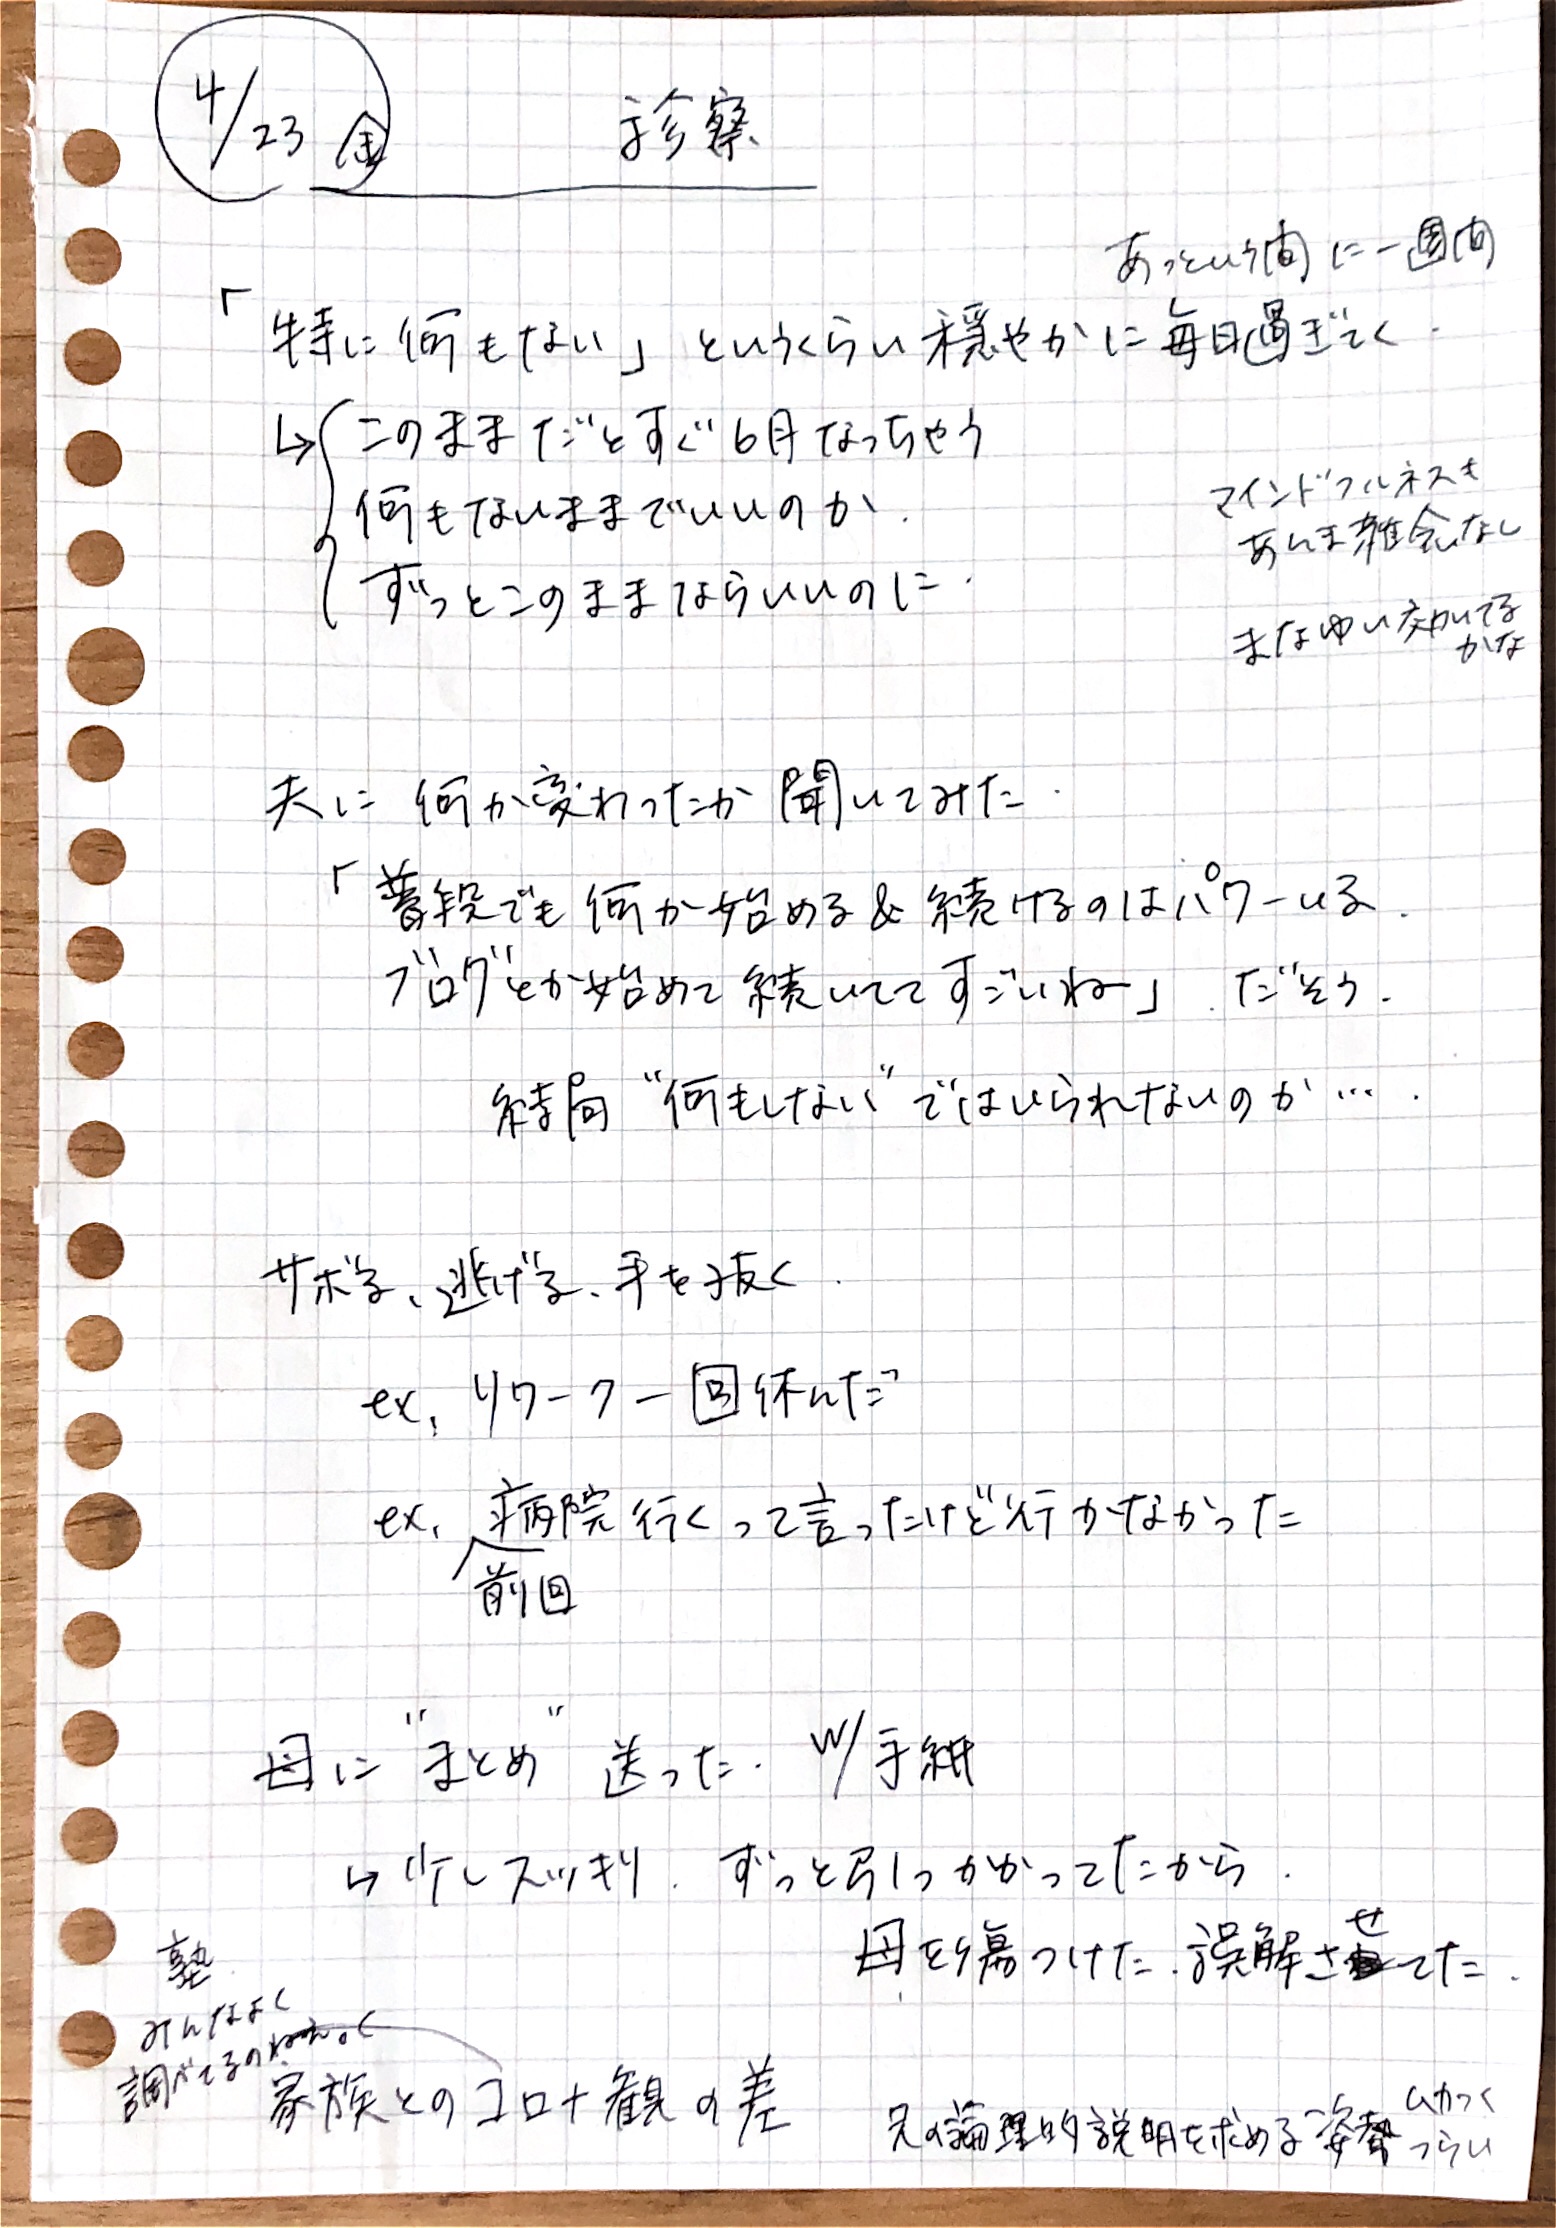 4/23 金 診察
あっという間に一週間
「特に何もない」というくらい穏やかに毎日過ぎてく.
↳このままだとすぐ6月なっちゃう
何もないままでいいのか.
ずっとこのままならいいのに.
マインドフルネスも
あんま雑念なし
まなゆい効いてる
かな
夫に何か変わったか聞いてみた.
「普段でも何か始める&続けるのはパワーいる.
ブログとか始めて続いててすごいねー」だそう.
結局“何もしない”ではいられないのか….
サボる、逃げる、手を抜く.
ex. リワーク一回休んだ
ex. 病院行くって言ったけど行かなかった
前回
母に“まとめ”送った. w/手紙
↳少しスッキリ. ずっと引っかかってたから.
母を傷つけた. 誤解させてた.
塾
みんなよく
調べてるのねぇ。
家族とのコロナ観の差
兄の論理的説明を求める姿勢
ムカつく
つらい